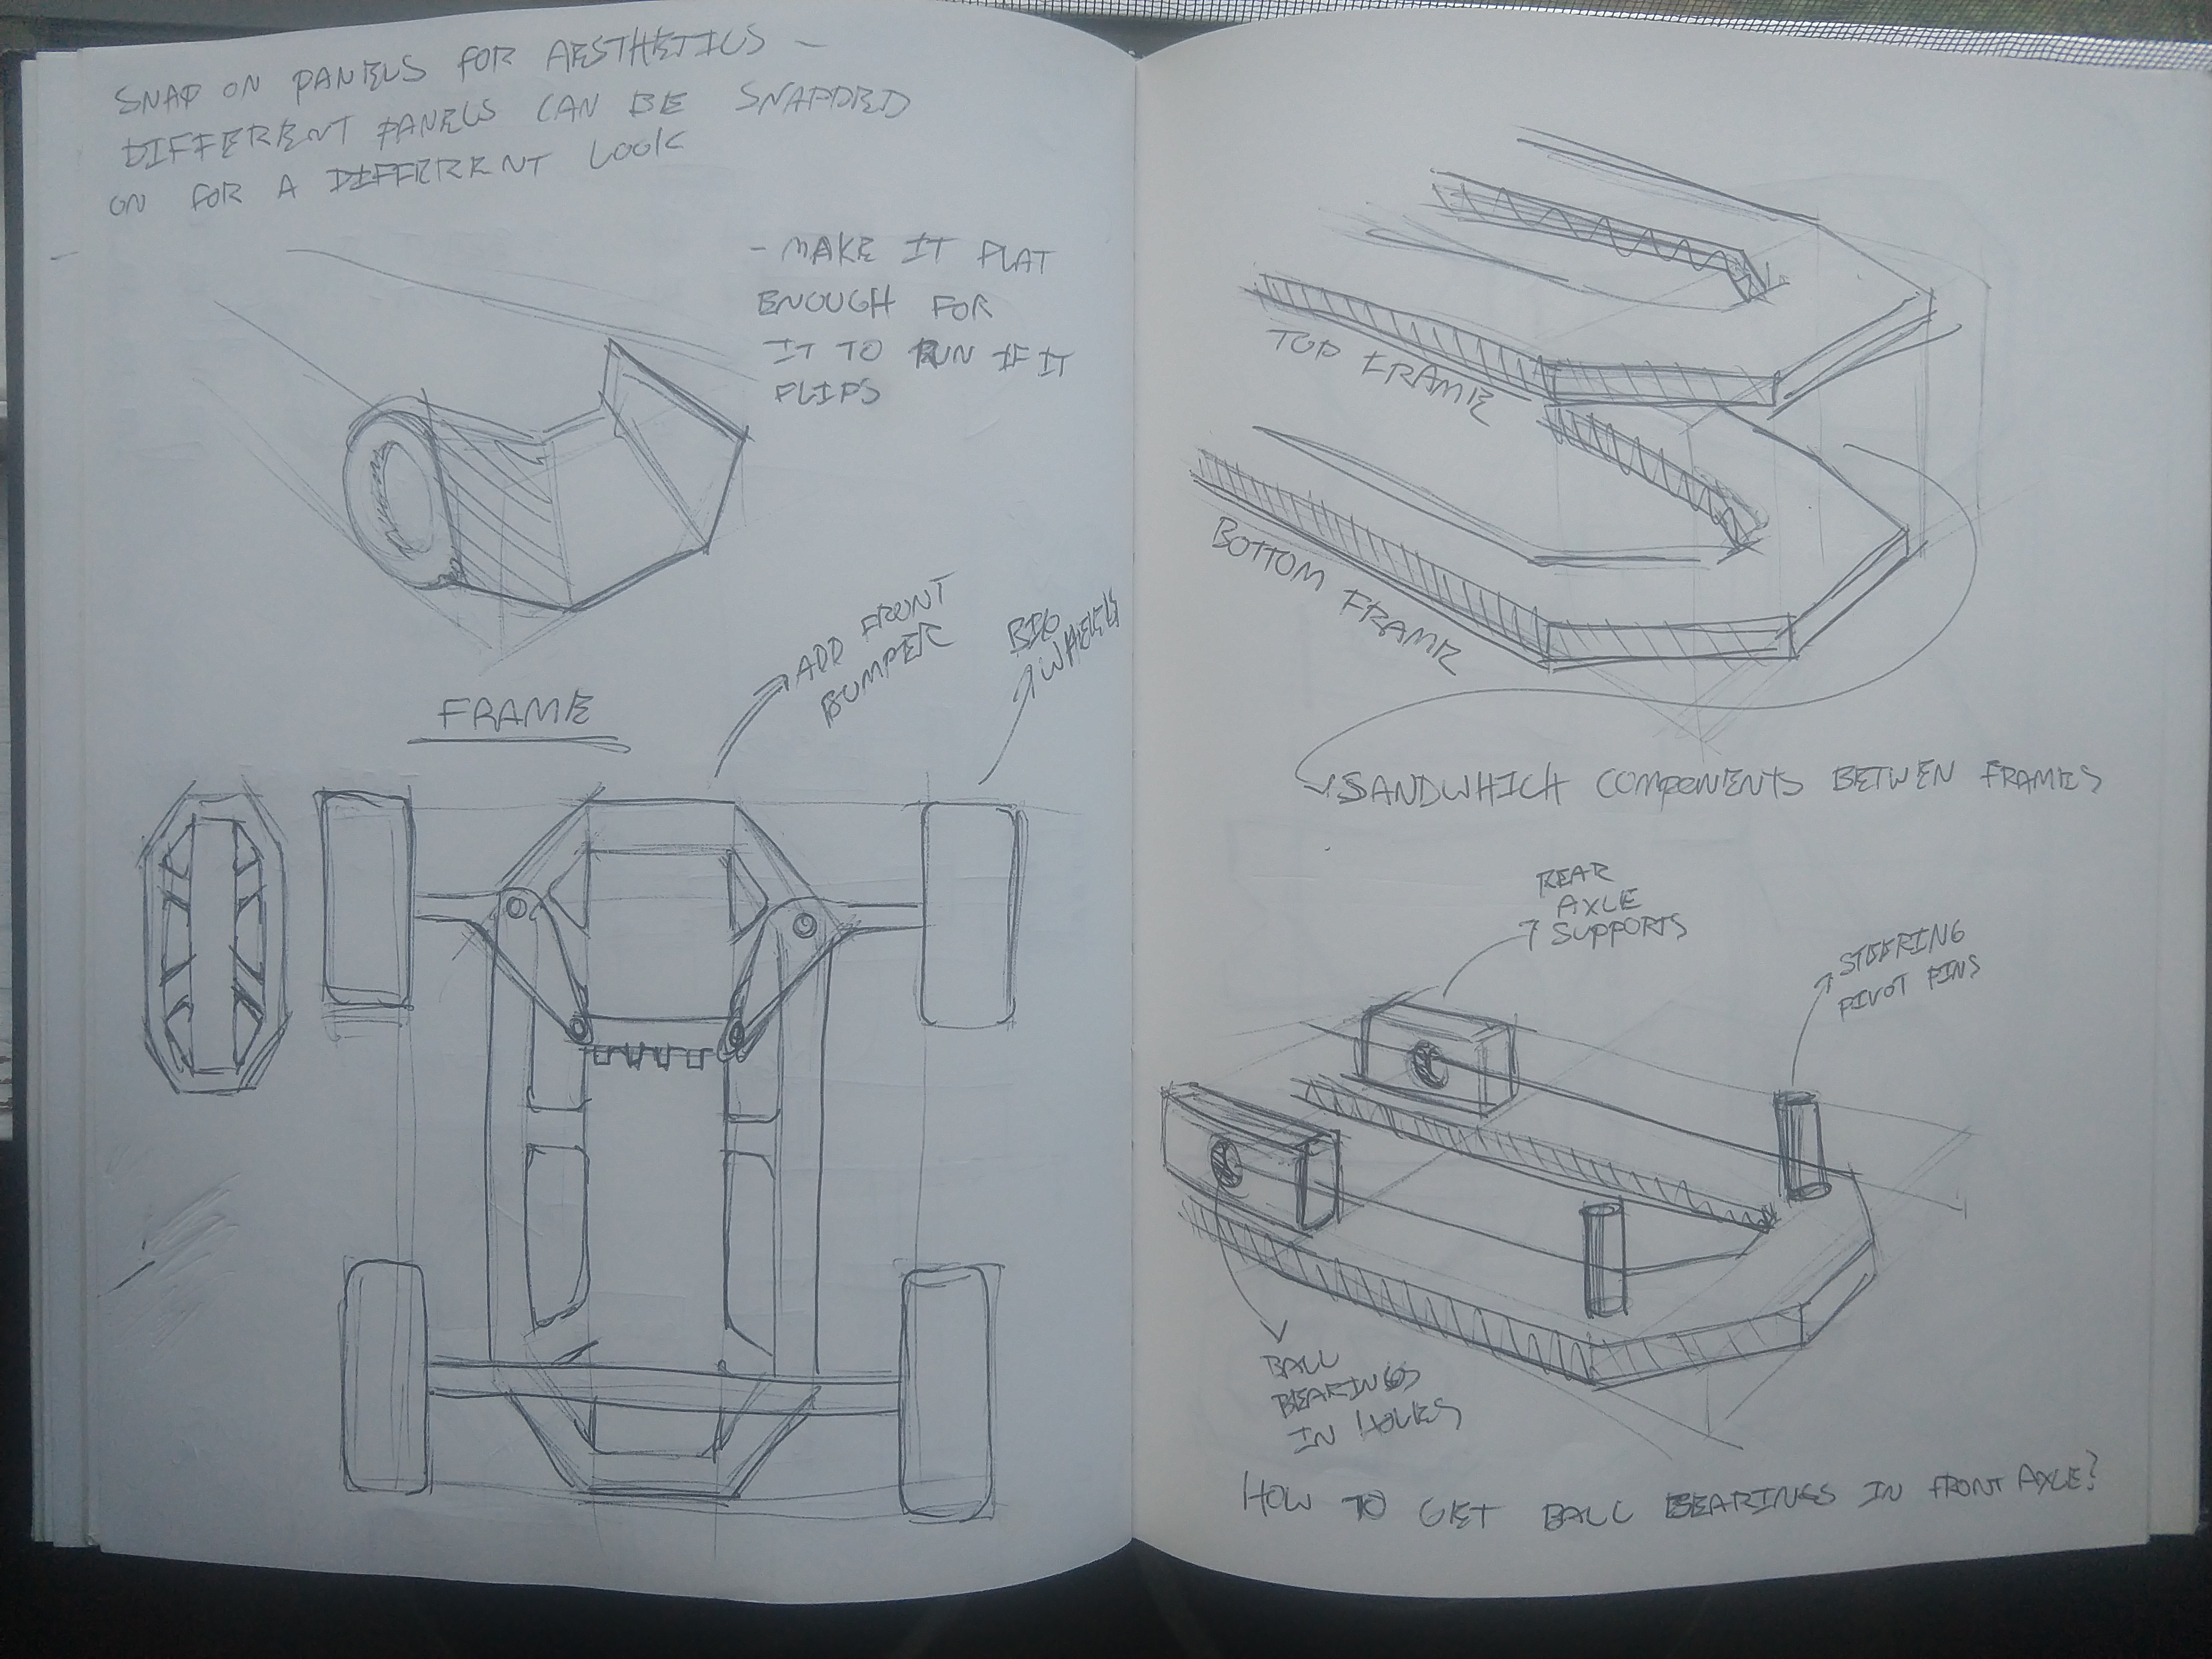 SNAP ON PANELS FOR AESTHETICS -
DIFFERENT PANELS CAN BE SNAPPED
ON FOR A DIFFERENT LOOK
- MAKE IT FLAT
ENOUGH FOR
IT TO RUN IF IT
FLIPS
FRAME
ADD FRONT
BUMPER
WHEELS
BOTTOM FRAME
TOP FRAME
SANDWHICH COMPONENTS BETWEEN FRAMES
REAR
AXLE
SUPPORTS
STEERING
PIVOT PINS
BALL
BEARINGS
IN HOLES
HOW TO GET BALL BEARINGS IN FRONT AXLE?